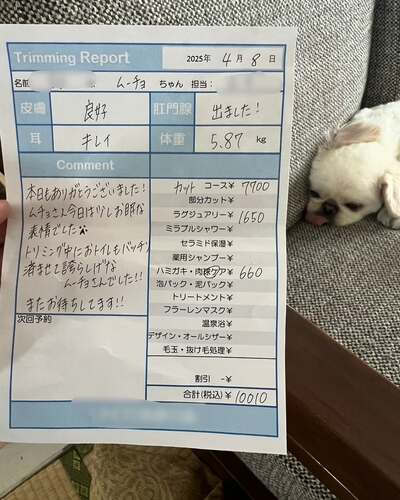 Trimming Report 2025年 4月 8日
名前 ムーチョ ちゃん 担当:
皮膚 良好 肛門腺 出ました!
耳 キレイ 体重 5.87 kg
Comment
本日もありがとうございました!
ムーチョさん今日は少しお眠な
表情でした
トリミング中におトイレもバッチリ
済ませて誇らしげな
ムーチョさんでした!!
またお待ちしてます!!
次回予約
カット コース¥ 7700
部分カット¥
ラグジュアリー¥ 1650
ミラブルシャワー¥
セラミド保湿¥
薬用シャンプー¥
ハミガキ・肉球ケア¥ 660
泡パック・泥パック¥
トリートメント¥
フラーレンマスク¥
温泉浴¥
デザイン・オールシザー¥
毛玉・抜け毛処理¥
割引 -¥
合計(税込)¥ 10010